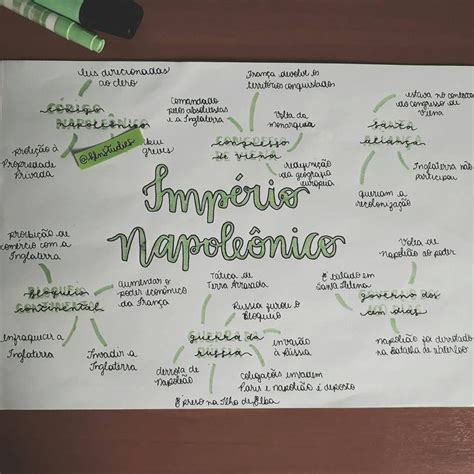 leis direcionadas
ao clero
CÓDIGO
NAPOLEÔNICO
@klnstudies
proteção à
Propriedade
Privada
greves
França devolve os
territórios conquistados
Comandado
pelos absolutistas
e a Inglaterra
Volta da
monarquia
congresso
de viena
redefinição
da geografia
europeia
estava no contexto
do congresso de
Viena
SANTA
aliança
Inglaterra não
participou
queriam a
recolonização
Império
Napoleônico
proibição de
comércio com a
Inglaterra
aumentar o
poder econômico
da França
Bloqueio
continental
Enfraquecer a
Inglaterra
Invadir a
Inglaterra
Tática de
Terra Arrasada
Rússia furou o
Bloqueio
guerra da
russia
invasão
à Rússia
derrota de
Napoleão
coligações invadem
Paris e napoleão é deposto
É preso na Ilha de Elba
É exilado em
Santa Helena
Volta de
napoleão ao poder
governo dos
cem dias
Napoleão foi derrotado
na Batalha de Waterloo